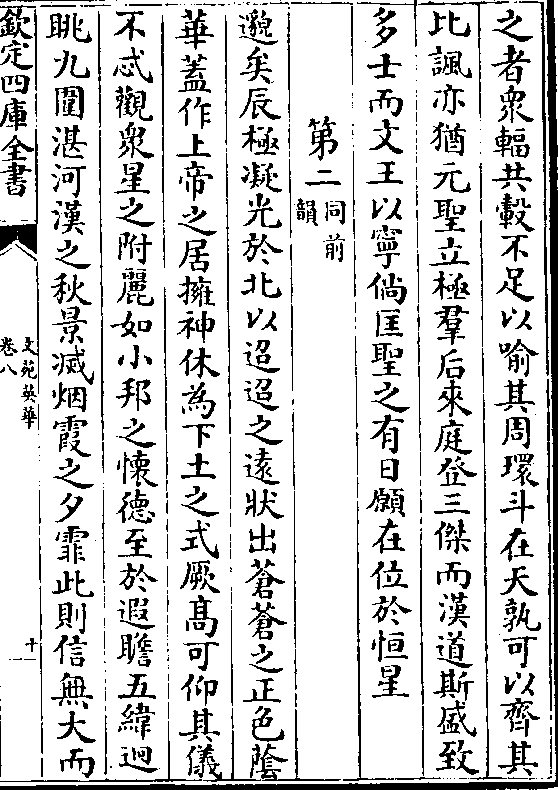 之者衆輻共轂不足以喻其周環斗在天孰可以齊其
比諷亦猶元聖立極羣后來庭登三傑而漢道斯盛致
多士而文王以寧倘匡聖之有日願在位於恒星
第二同前韻
邈矣辰極凝光於北以迢迢之遠狀出蒼蒼之正色蔭
華蓋作上帝之居擁神休為下土之式厥髙可仰其儀
不忒觀衆星之附麗如小邦之懷德至於遐瞻五緯迥
眺九圍湛河漢之秋景滅烟霞之夕霏此則信無大而
欽定四庫全書
文苑英華
卷八
十一